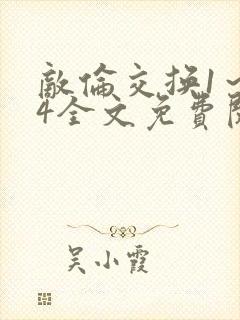 敵倫交换1~
4全文免費閱
吴小霞